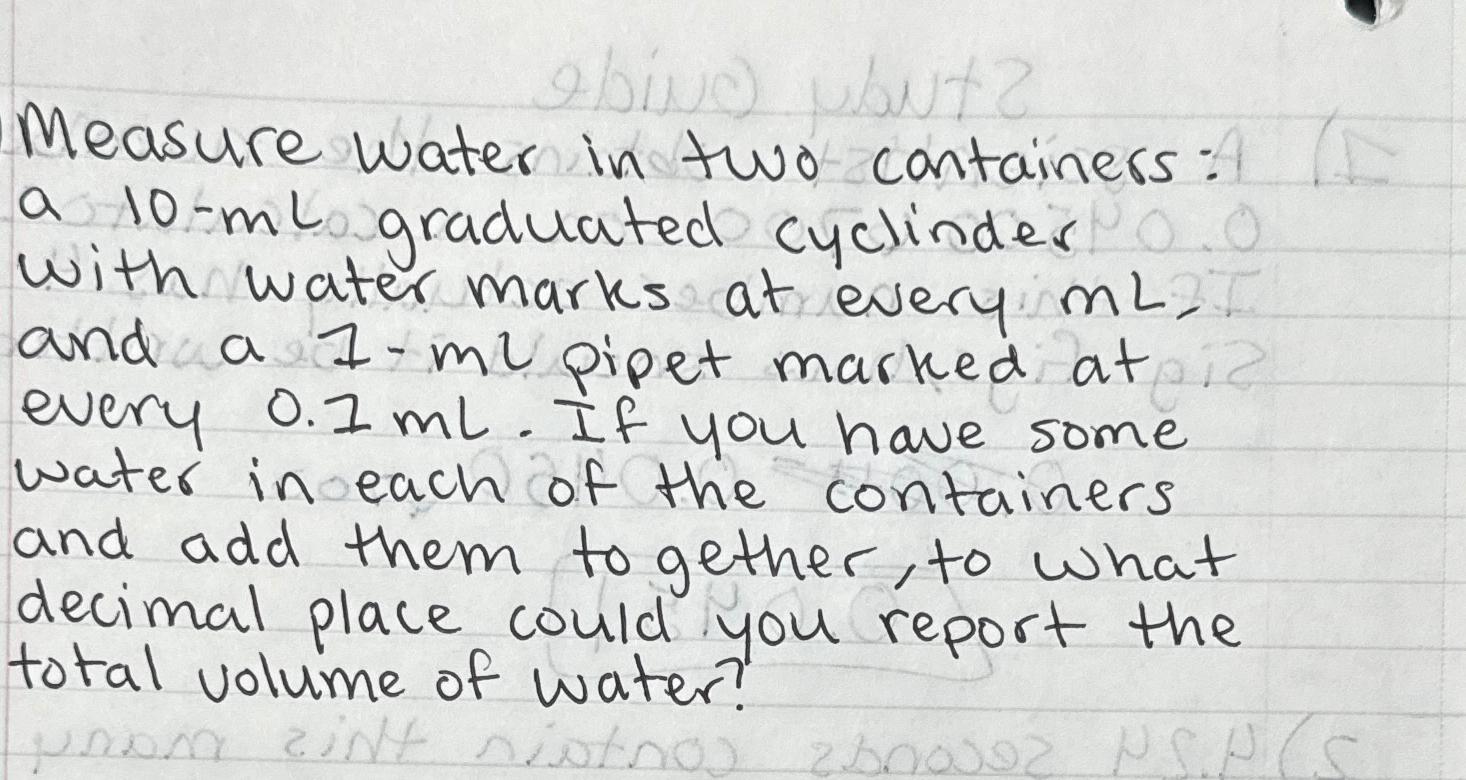 Study Guide
Measure water in two containers:
a 10-mL graduated cyclinder
with water marks at every mL,
and a 1-mL pipet marked at
every 0.1 mL. If you have some
water in each of the containers
and add them together, to what
decimal place could you report the
total volume of water?
2) 4.24 seconds contain this many